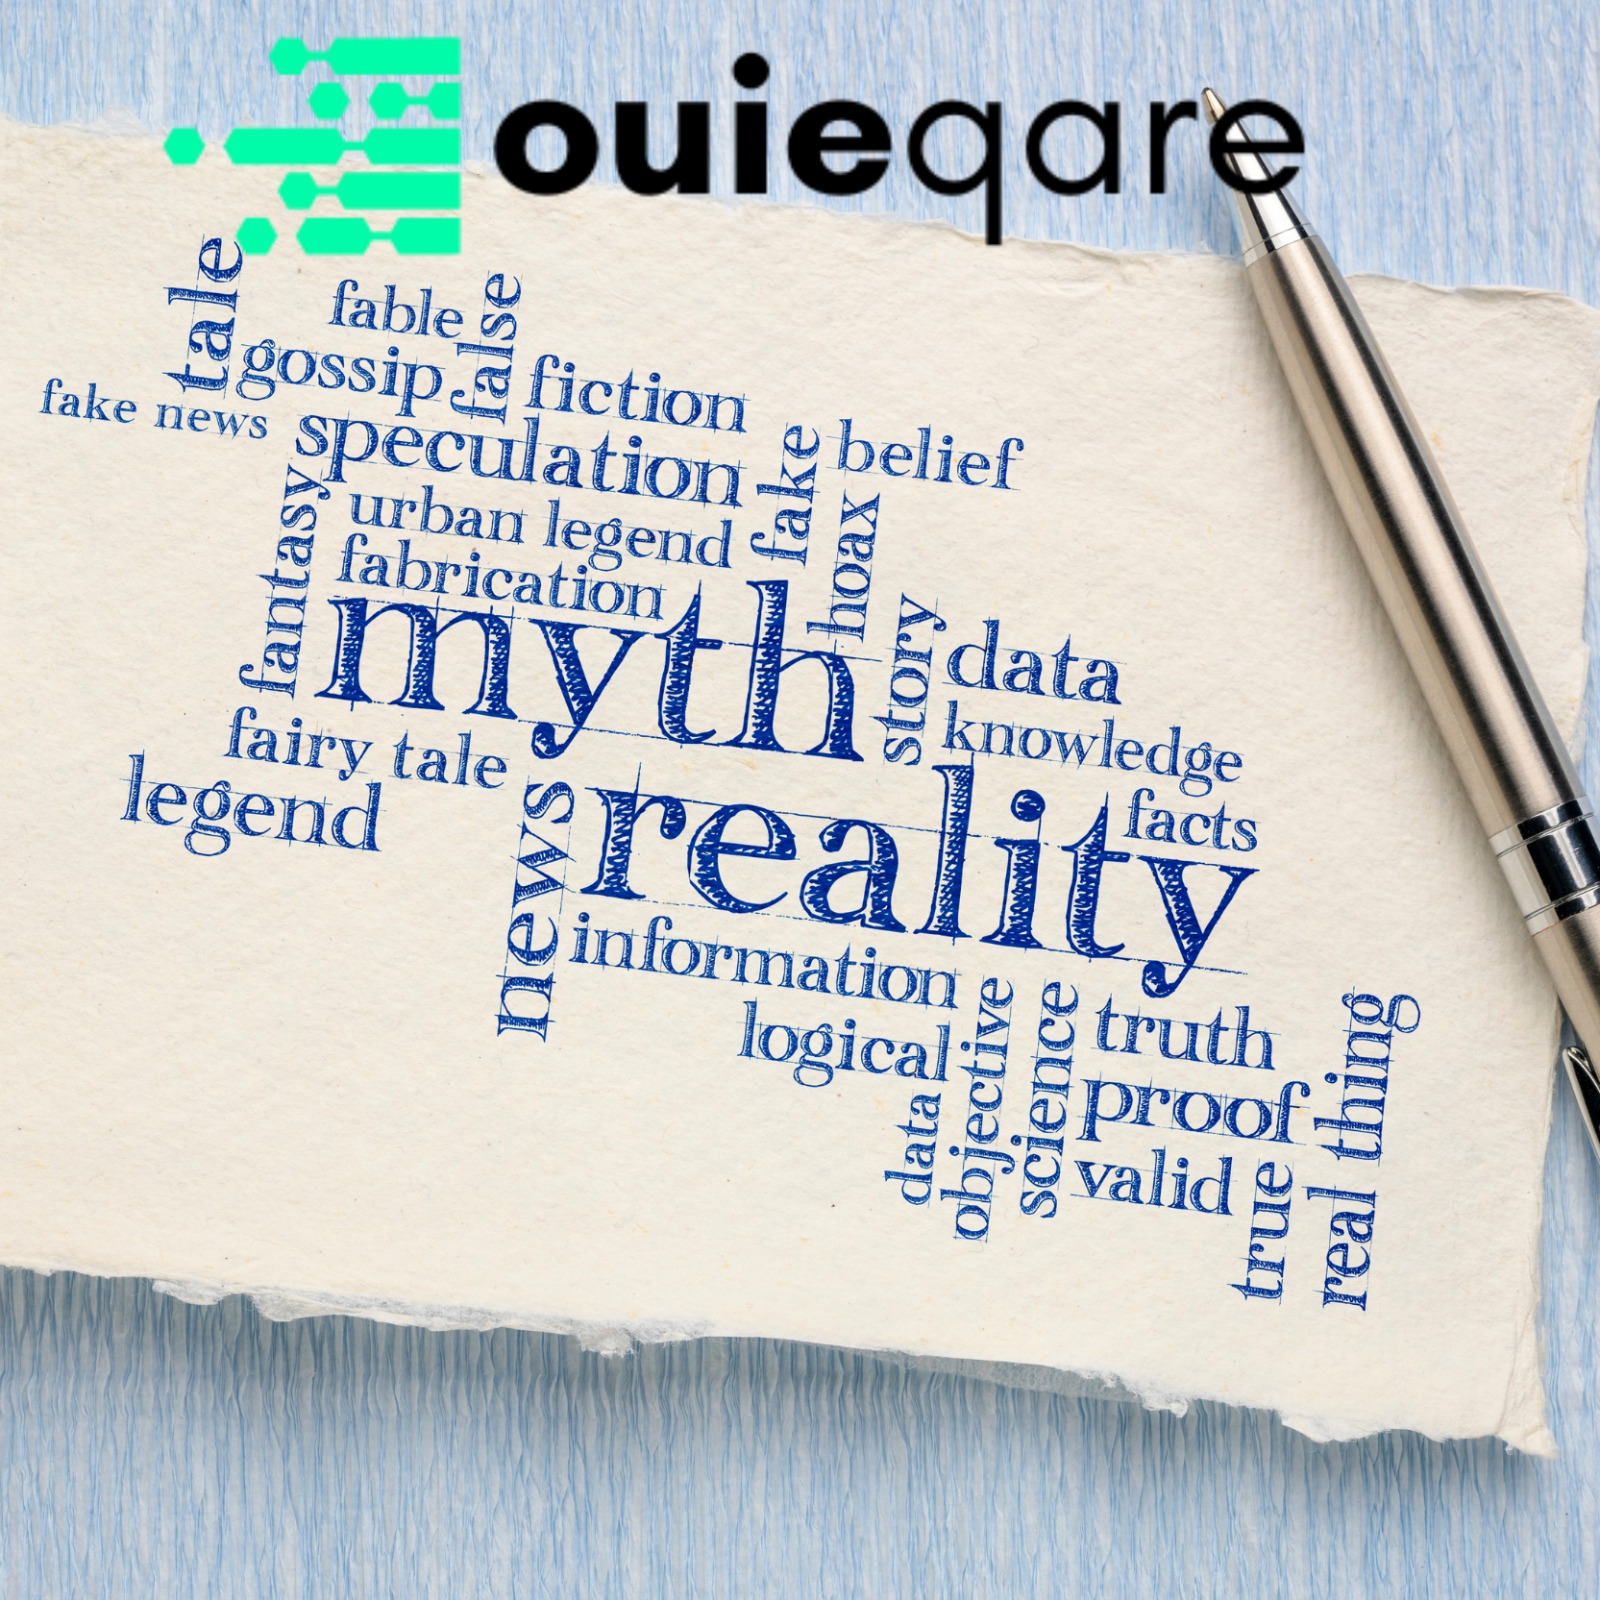 ouieqare
tale
fable
false
gossip
fiction
fake news
speculation
fake
belief
fantasy
urban legend
hoax
fabrication
myth
story
data
knowledge
fairy tale
legend
news
reality
facts
information
logical
objective
science
truth
real thing
data
proof
valid
true